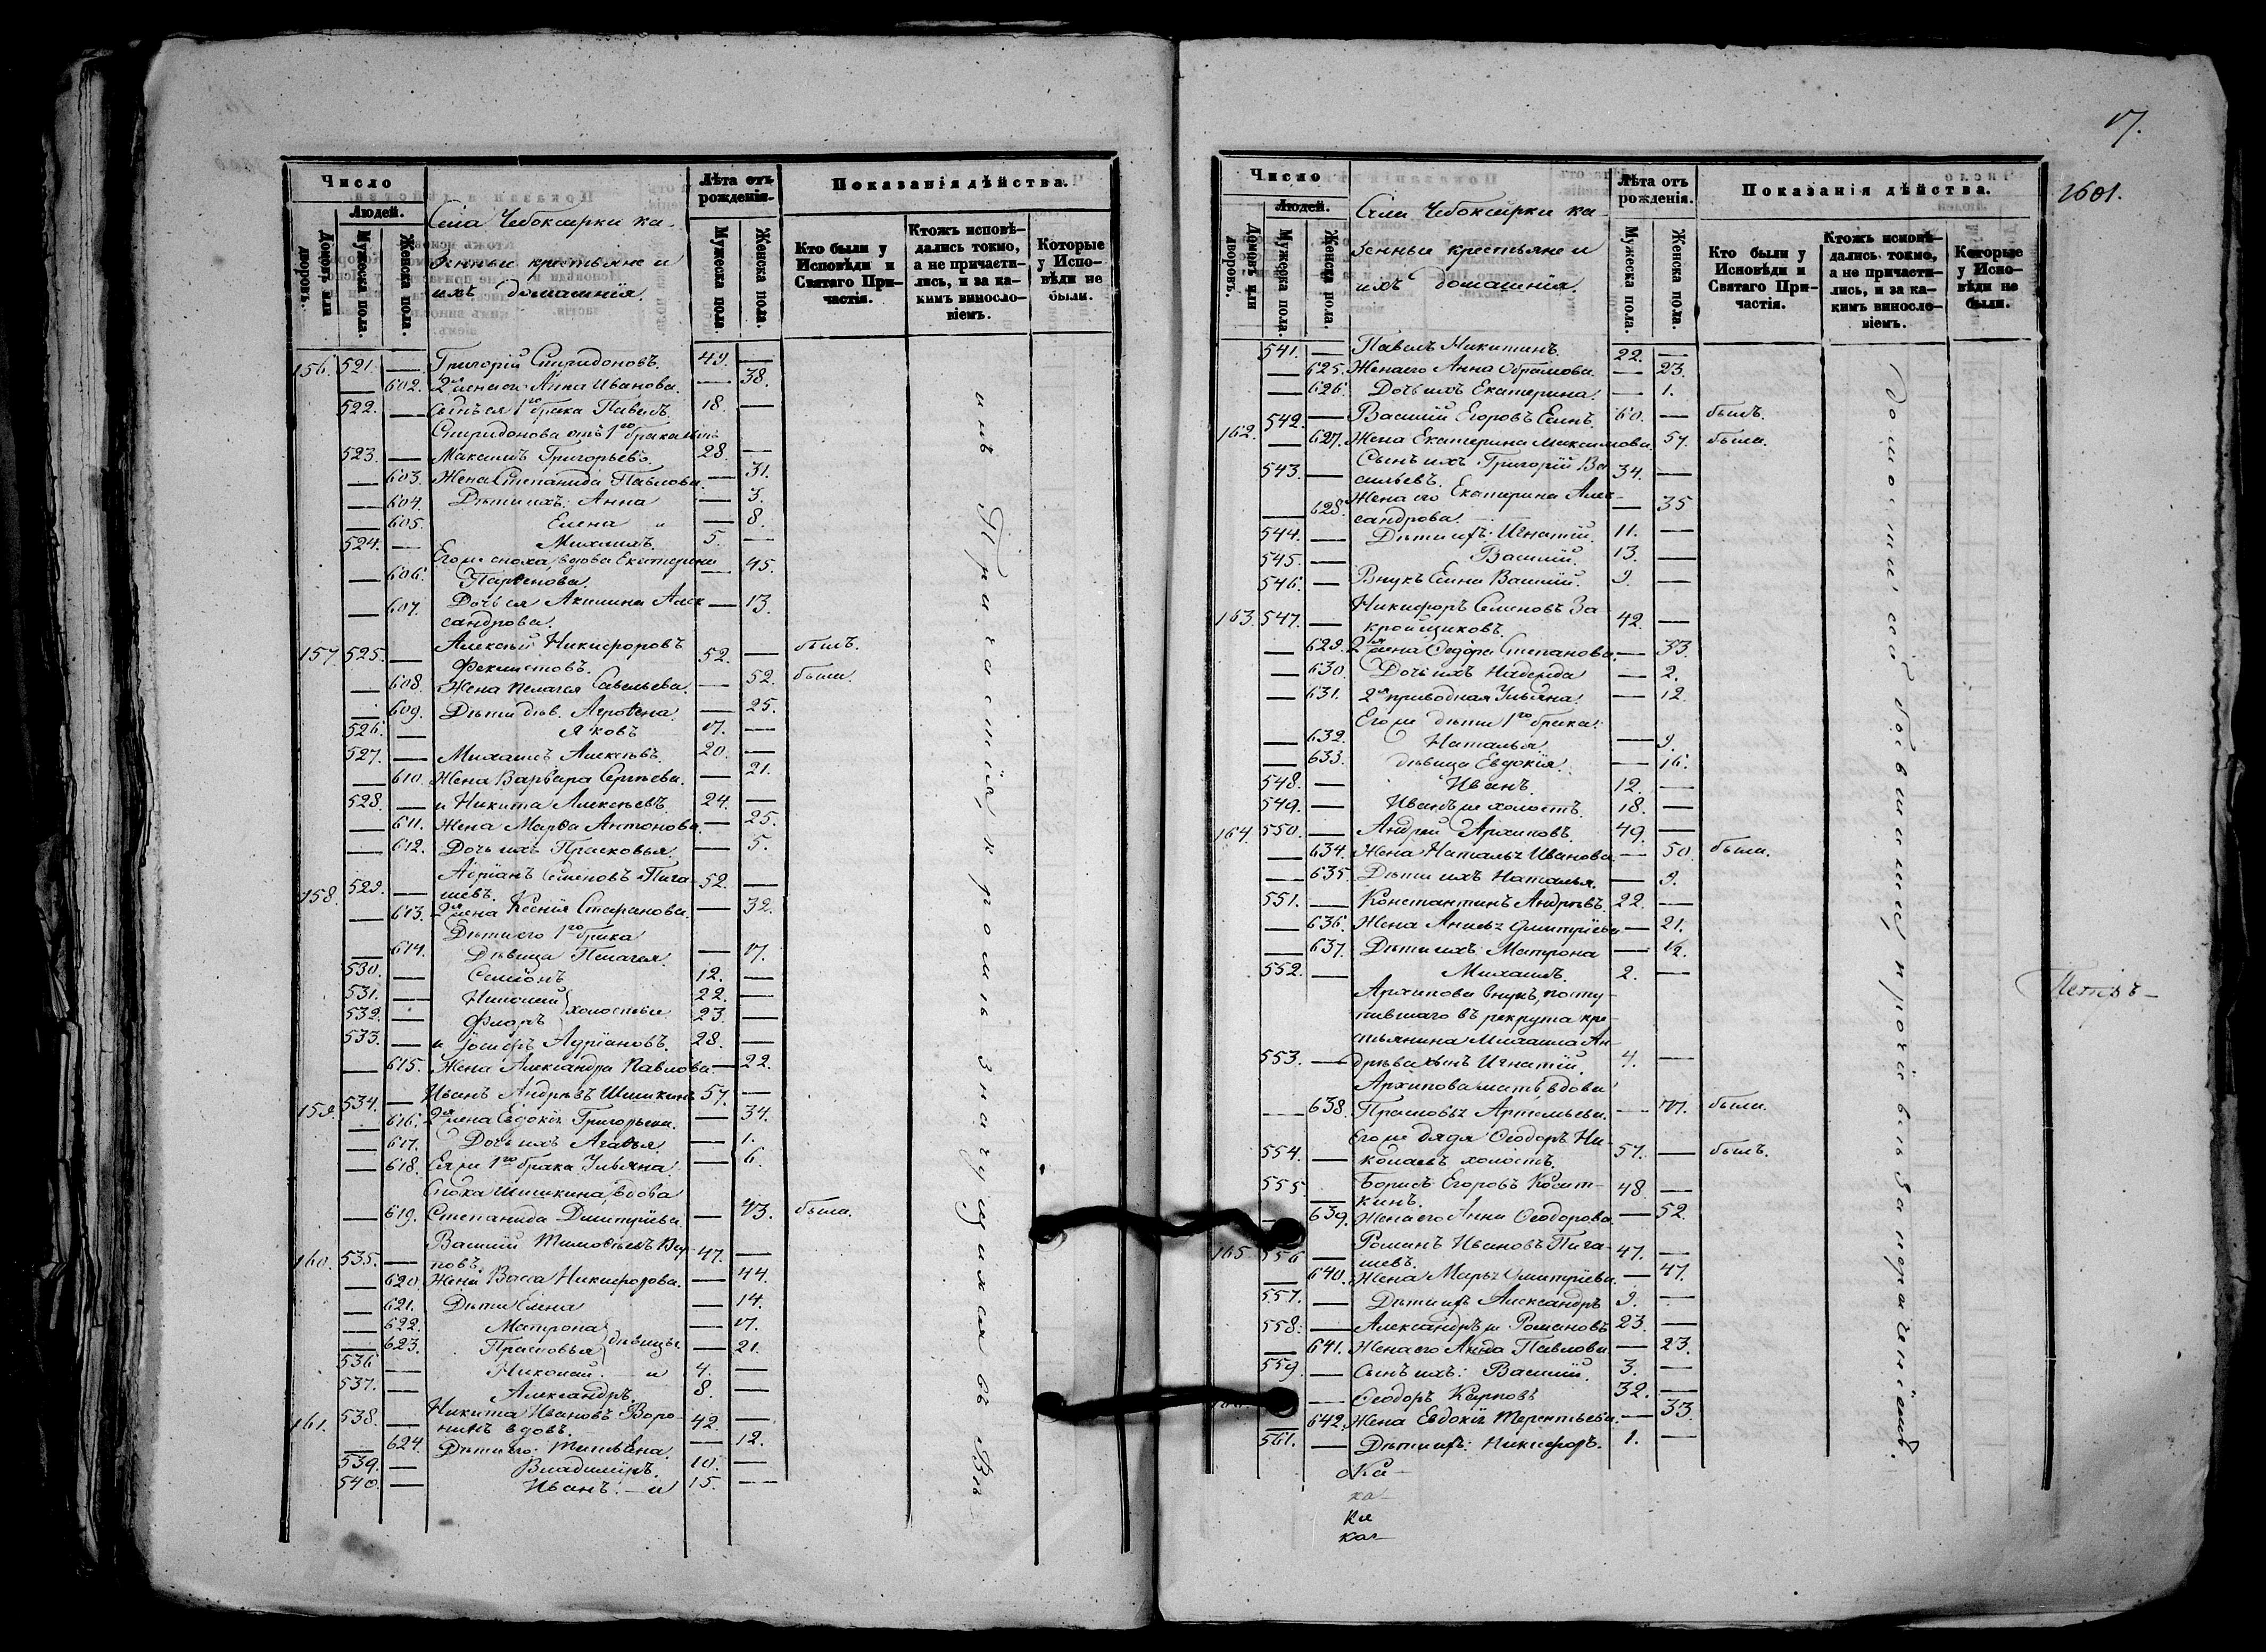 Число
Людей.
Домовъ или дворовъ.
Мужеска пола.
Женска пола.
Села Чебоксарки ка-
зенные крестьяне и
ихъ домашнія.
Лѣта отъ рожденія.
Мужеска пола
Женска пола.
Показанія дѣйства.
Кто были у Исповѣди и Святаго Причастія.
Ктожъ исповѣдались токмо, а не причастились, и за какимъ винословіемъ.
Которые у Исповѣди не были.
156. 521. — Григорій Спиридоновъ. 49. —
— 602. 2я жена его Анна Иванова. — 38.
522. — Сынъ ея 1го брака Павелъ. 18. —
Спиридонова отъ 1го брака
523. — Максимъ Григорьевъ. 28. —
— 603. Жена Степанида Павлова. — 31.
— 604. Дѣти ихъ: Анна — 3.
— 605. Елена — 8.
524. — Михаилъ. 5. —
Его же сноха, вдова Екатерина
— 606. Парѳенова. — 45.
— 607. Дочь ея Акилина Алек- — 13.
сандрова.
157. 525. — Алексѣй Никифоровъ 52. — былъ.
Феклистовъ.
— 608. Жена Пелагея Савельева. — 52. была.
— 609. Дѣти дѣв. Агрофена. — 25.
526. — Яковъ 17. —
527. — Михаилъ Алексѣевъ. 20. —
— 610. Жена Варвара Сергѣева. — 21.
528. — и Никита Алексѣевъ. 24. —
— 611. Жена Марѳа Антонова. — 25.
— 612. Дочь ихъ Прасковья. — 5.
158. 529. — Адріанъ Семеновъ Пига- 52. —
шевъ.
— 613. 2я жена Ксенія Стефанова. — 32.
Дѣти его 1го брака
— 614. Дѣвица Пелагея. — 17.
530. — Семіонъ 12. —
531. — Николай 22. —
532. — Флоръ холостые 23. —
533. — и Іосифъ Адріановъ. 28. —
— 615. Жена Александра Павлова — 22.
159. 534. — Иванъ Андреевъ Шишкинъ 57. —
— 616. 2я жена Евдокія Григорьева. — 34.
— 617. Дочь ихъ Агаѳья. — 1.
— 618. Ея же 1го брака Ульяна — 6.
Сноха Шишкина, вдова
— 619. Степанида Дмитріева. — 43. была.
160. 535. — Василій Тимоѳеевъ Кар- 47. —
повъ.
— 620. Жена Васса Никифорова. — 44.
— 621. Дѣти Елена — 14.
— 622. Матрона — 17.
— 623. Прасковья дѣвицы — 21.
536. — Николай и 4. —
537. — Александръ. 8. —
161. 538. — Никита Ивановъ Воро- 42. —
нинъ вдовъ.
— 624. Дѣти его: Татьяна. — 12.
539. — Владиміръ. 10. —
540. — Иванъ. — и 15. —
и Св. Причастія, кромѣ значущихся въ Вѣ
17.
1601.
Число
Людей.
Домовъ или дворовъ.
Мужеска пола.
Женска пола.
Села Чебоксарки ка-
зенные крестьяне и
ихъ домашнія.
Лѣта отъ рожденія.
Мужеска пола.
Женска пола.
Показанія дѣйства.
Кто были у Исповѣди и Святаго Причастія.
Ктожъ исповѣдались токмо, а не причастились, и за какимъ винословіемъ.
Которые у Исповѣди не были.
541. — Павелъ Никитинъ. 22. —
— 625. Жена его Анна Абрамова. — 23.
— 626. Дочь ихъ Екатерина. — 1.
162. 542. — Василій Егоровъ Елинъ. 60. — былъ.
— 627. Жена Екатерина Максимова. — 57. была.
543. — Сынъ ихъ Григорій Ва- 34. —
сильевъ.
— 628. Жена его Екатерина Алек- — 35
сандрова.
544. — Дѣти ихъ: Игнатій. 11. —
545. — Василій. 13. —
546. — Внукъ Елина Василій. 9. —
163. 547. — Никифоръ Семеновъ За- 42. —
кройщиковъ.
— 629. 2я жена Ѳедора Степанова. — 33.
— 630. Дочь ихъ Надежда — 2.
— 631. 2я приводная Ульяна — 12.
Его же дѣти 1го брака:
— 632. Наталья. — 9.
— 633. дѣвица Евдокія. — 16.
548. — Иванъ. 12. —
549. — Иванъ же холостъ. 18. —
164. 550. — Андрей Архиповъ. 49. —
— 634. Жена Наталья Иванова — 50. была.
— 635. Дѣти ихъ Наталья. — 9.
551. — Константинъ Андреевъ. 22. —
— 636. Жена Анисья Дмитріева — 21.
— 637. Дѣти ихъ: Матрона — ½.
552. — Михаилъ. 2. —
Архипова внукъ, посту-
пившаго въ рекрута кре-
стьянина Михаила Ан-
553. — дреева сынъ Игнатій. 4. —
Архипова мать, вдова
— 638. Прасковья Артемьева. — 77. была.
Его же дядя Ѳеодоръ Ни-
554. — колаевъ холостъ. 57. — былъ.
555. Борисъ Егоровъ 48. —
кинъ.
— 639. Жена его Анна Ѳеодорова. — 52.
165. 556 — Романъ Ивановъ Пига- 47. —
шевъ.
— 640. Жена Марья Дмитріева. — 47.
557. — Дѣти ихъ Александръ 9. —
558. — Александръ же Романовъ 23. —
— 641. Жена его Анна Павлова — 23.
559. — Сынъ ихъ: Василій. 3. —
— Ѳеодоръ Карповъ 32. —
— 642. Жена Евдокія Терентьева. — 33.
561. — Дѣти ихъ: Никифоръ. 1. —